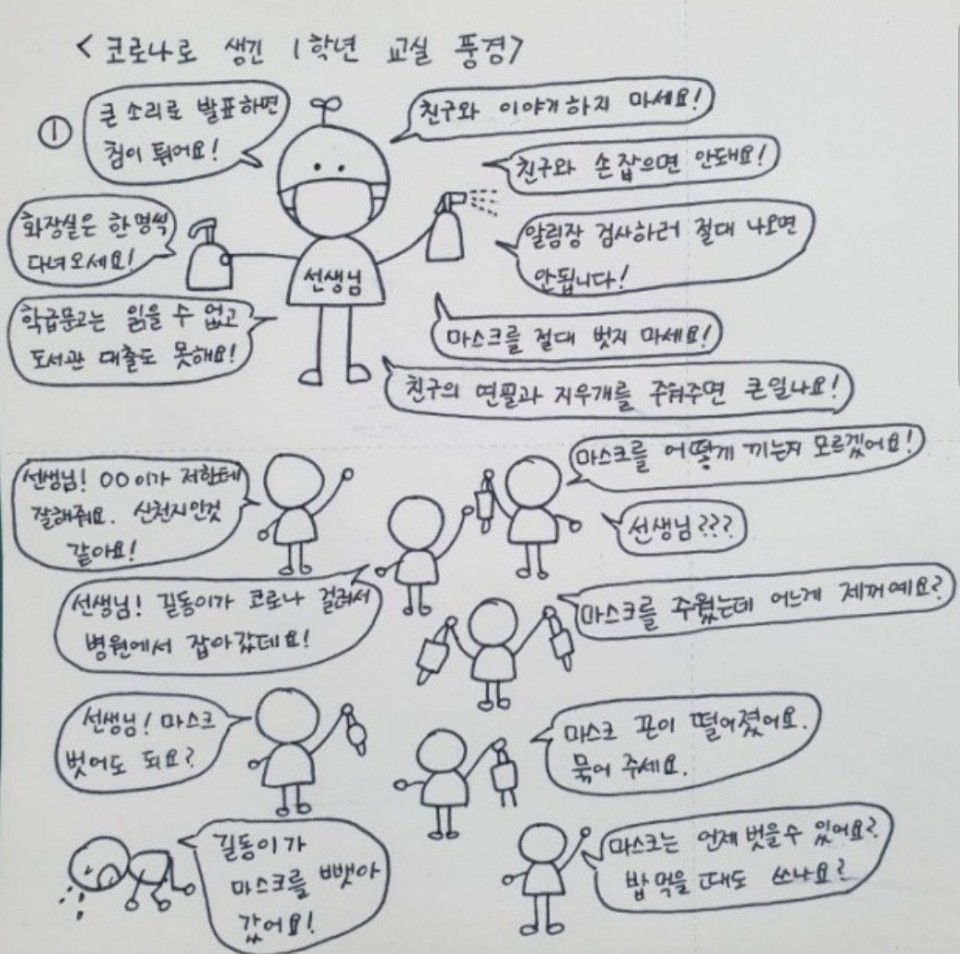 <코로나로 생긴 1학년 교실 풍경>
①
큰 소리로 발표하면
침이 튀어요!
친구와 이야기하지 마세요!
친구와 손잡으면 안돼요!
화장실은 한명씩
다녀오세요!
알림장 검사하러 절대 나오면
안됩니다!
선생님
학급문고는 읽을 수 없고
도서관 대출도 못해요!
마스크를 절대 벗지 마세요!
친구의 연필과 지우개를 주워주면 큰일나요!
마스크를 어떻게 끼는지 모르겠어요!
선생님! OO이가 저한테
잘해줘요. 신천지인것
같아요!
선생님???
선생님! 길동이가 코로나 걸려서
병원에서 잡아갔데요!
마스크를 주웠는데 어느게 제꺼예요?
선생님! 마스크
벗어도 되요?
마스크 끈이 떨어졌어요.
묶어 주세요.
길동이가
마스크를 뺏아
갔어요!
마스크는 언제 벗을수 있어요?
밥 먹을 때도 쓰나요?